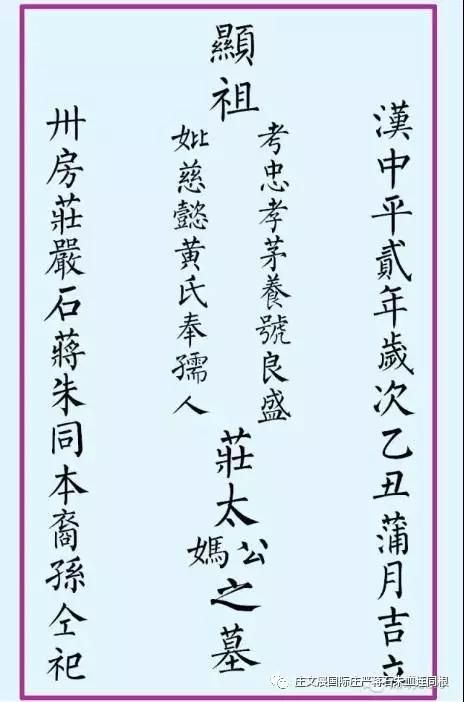 漢中平貳年歲次乙丑蒲月吉立
顯祖
考忠孝茅養號良盛
妣慈懿黃氏奉孺人
莊太
公
媽
之墓
卅房莊嚴石蔣朱同本裔孫仝祀
庄文展国际庄严蒋石朱血连同根